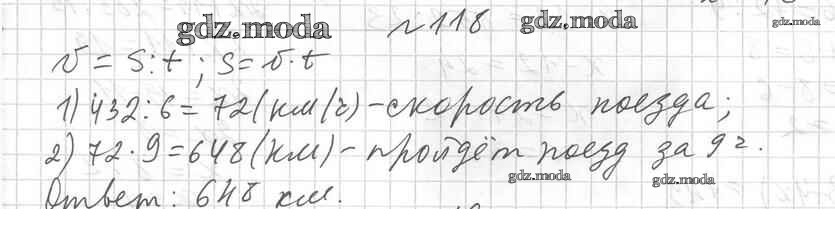 gdz.moda №118 gdz.moda
v = s:t; s = v·t
1) 432:6=72(км/ч)-скорость поезда;
2) 72·9=648(км)-пройдёт поезд за 9 ч.
gdz.moda gdz.moda
Ответ: 648 км.